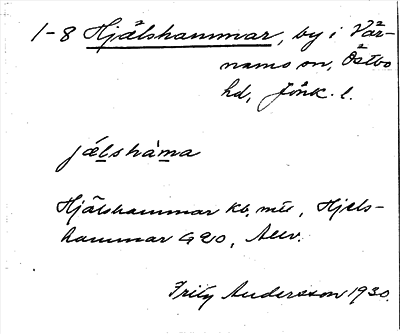 1-8 Hjälshammar, by i Vär-
namo sn, Östbo
hd, Jönk. l.
jælshàma
Hjälshammar kb, mtl, Hjels-
hammar G 20, Allm.
Fritz Andersson 1930.